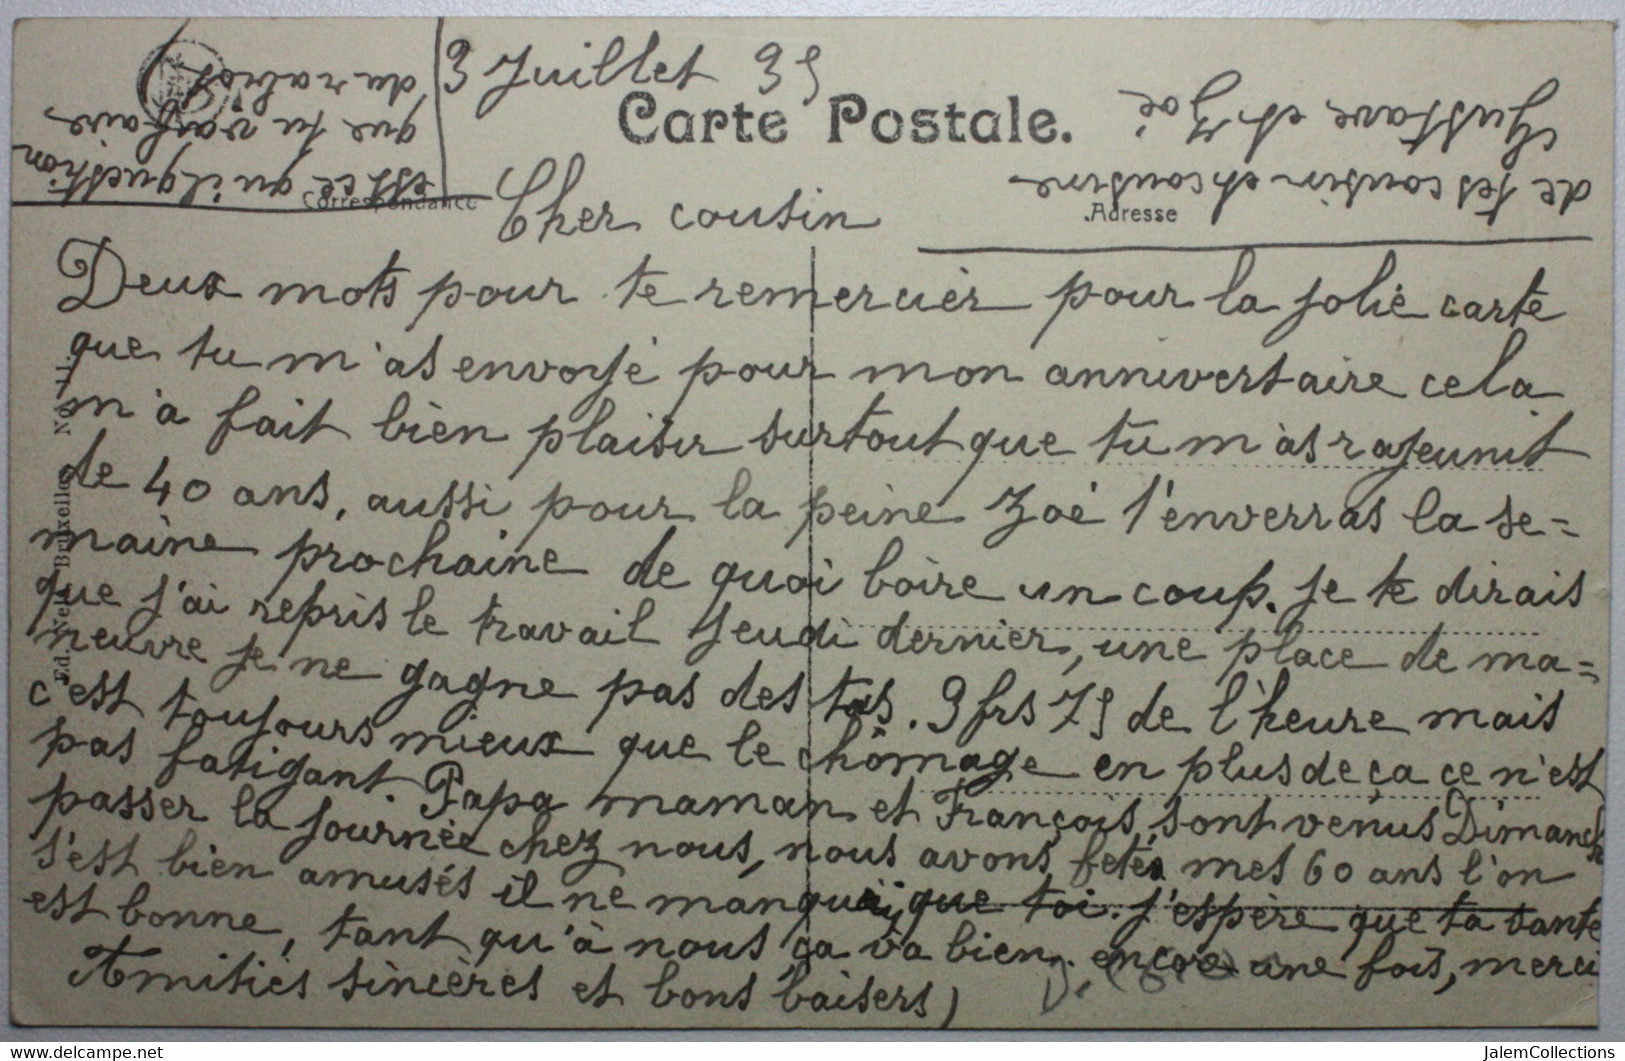 3 Juillet 35
Carte Postale.
Correspondance
Adresse
Cher cousin
Deux mots pour te remercier pour la jolie carte
que tu m'as envoyé pour mon anniversaire cela
m'a fait bien plaisir surtout que tu m'as rajeunit
de 40 ans, aussi pour la peine Zoé t'enverras la se=
maine prochaine de quoi boire un coup. Je te dirais
que j'ai repris le travail jeudi dernier, une place de ma=
neuvre je ne gagne pas des tas. 3 frs 75 de l'heure mais
c'est toujours mieux que le chômage en plus de ça ce n'est
pas fatigant. Papa maman et François sont venus Dimanch
passer la journée chez nous, nous avons fetés mes 60 ans l'on
s'est bien amusés il ne manquaij que toi. J'espère que ta sante
est bonne, tant qu'à nous ça va bien. encore une fois, merci
Amitiés sincères et bons baisers
de tes cousin et cousine
Gustave et Zoé
est ce qu'il question
que tu vas faire
du rabiot
Ed. Nels, Bruxelles No
JalemCollections
https://www.delcampe.net